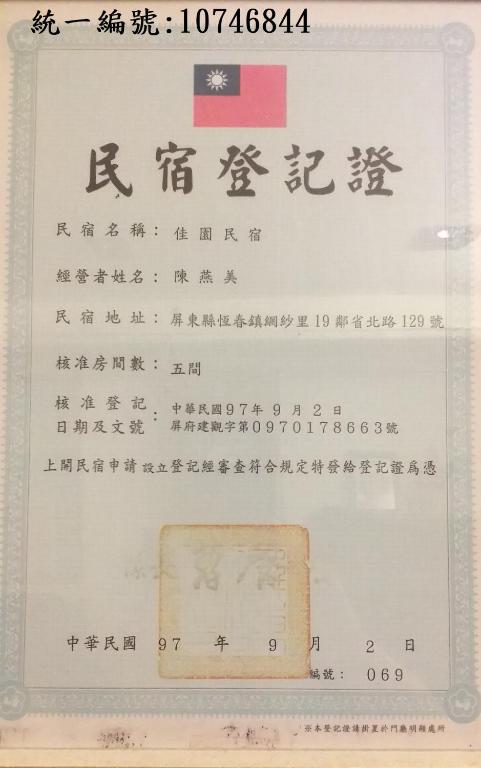 統一編號:10746844
民宿登記證
民宿名稱： 佳園民宿
經營者姓名： 陳燕美
民宿地址： 屏東縣恆春鎮網紗里19鄰省北路129號
核准房間數： 五間
核准登記日期及文號： 中華民國97年9月2日
屏府建觀字第0970178663號
上開民宿申請設立登記經審查符合規定特發給登記證為憑
中華民國 97 年 9 月 2 日
編號： 069
※本登記證請掛置於門廳明顯處所